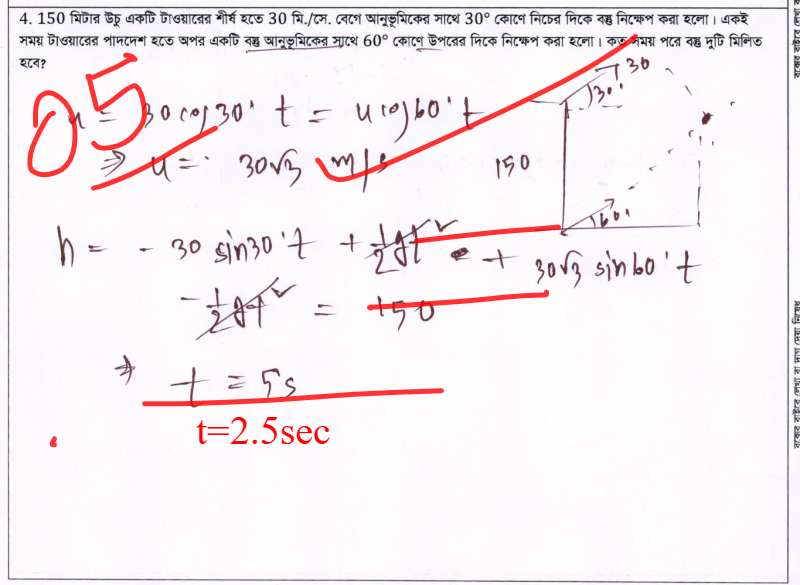 4. 150 মিটার উচু একটি টাওয়ারের শীর্ষ হতে 30 মি./সে. বেগে আনুভূমিকের সাথে 30° কোণে নিচের দিকে বস্তু নিক্ষেপ করা হলো। একই
সময় টাওয়ারের পাদদেশ হতে অপর একটি বস্তু আনুভূমিকের সাথে 60° কোণে উপরের দিকে নিক্ষেপ করা হলো। কত সময় পরে বস্তু দুটি মিলিত
হবে?
05
30
30°
= 30 cos 30° t = u cos 60° t
⇒ u = 30√3 m/s
150
60°
h = - 30 sin 30° t + 1/2 gt² + 30√3 sin 60° t
- 1/2 gt² = 150
⇒ t = 5s
t=2.5sec